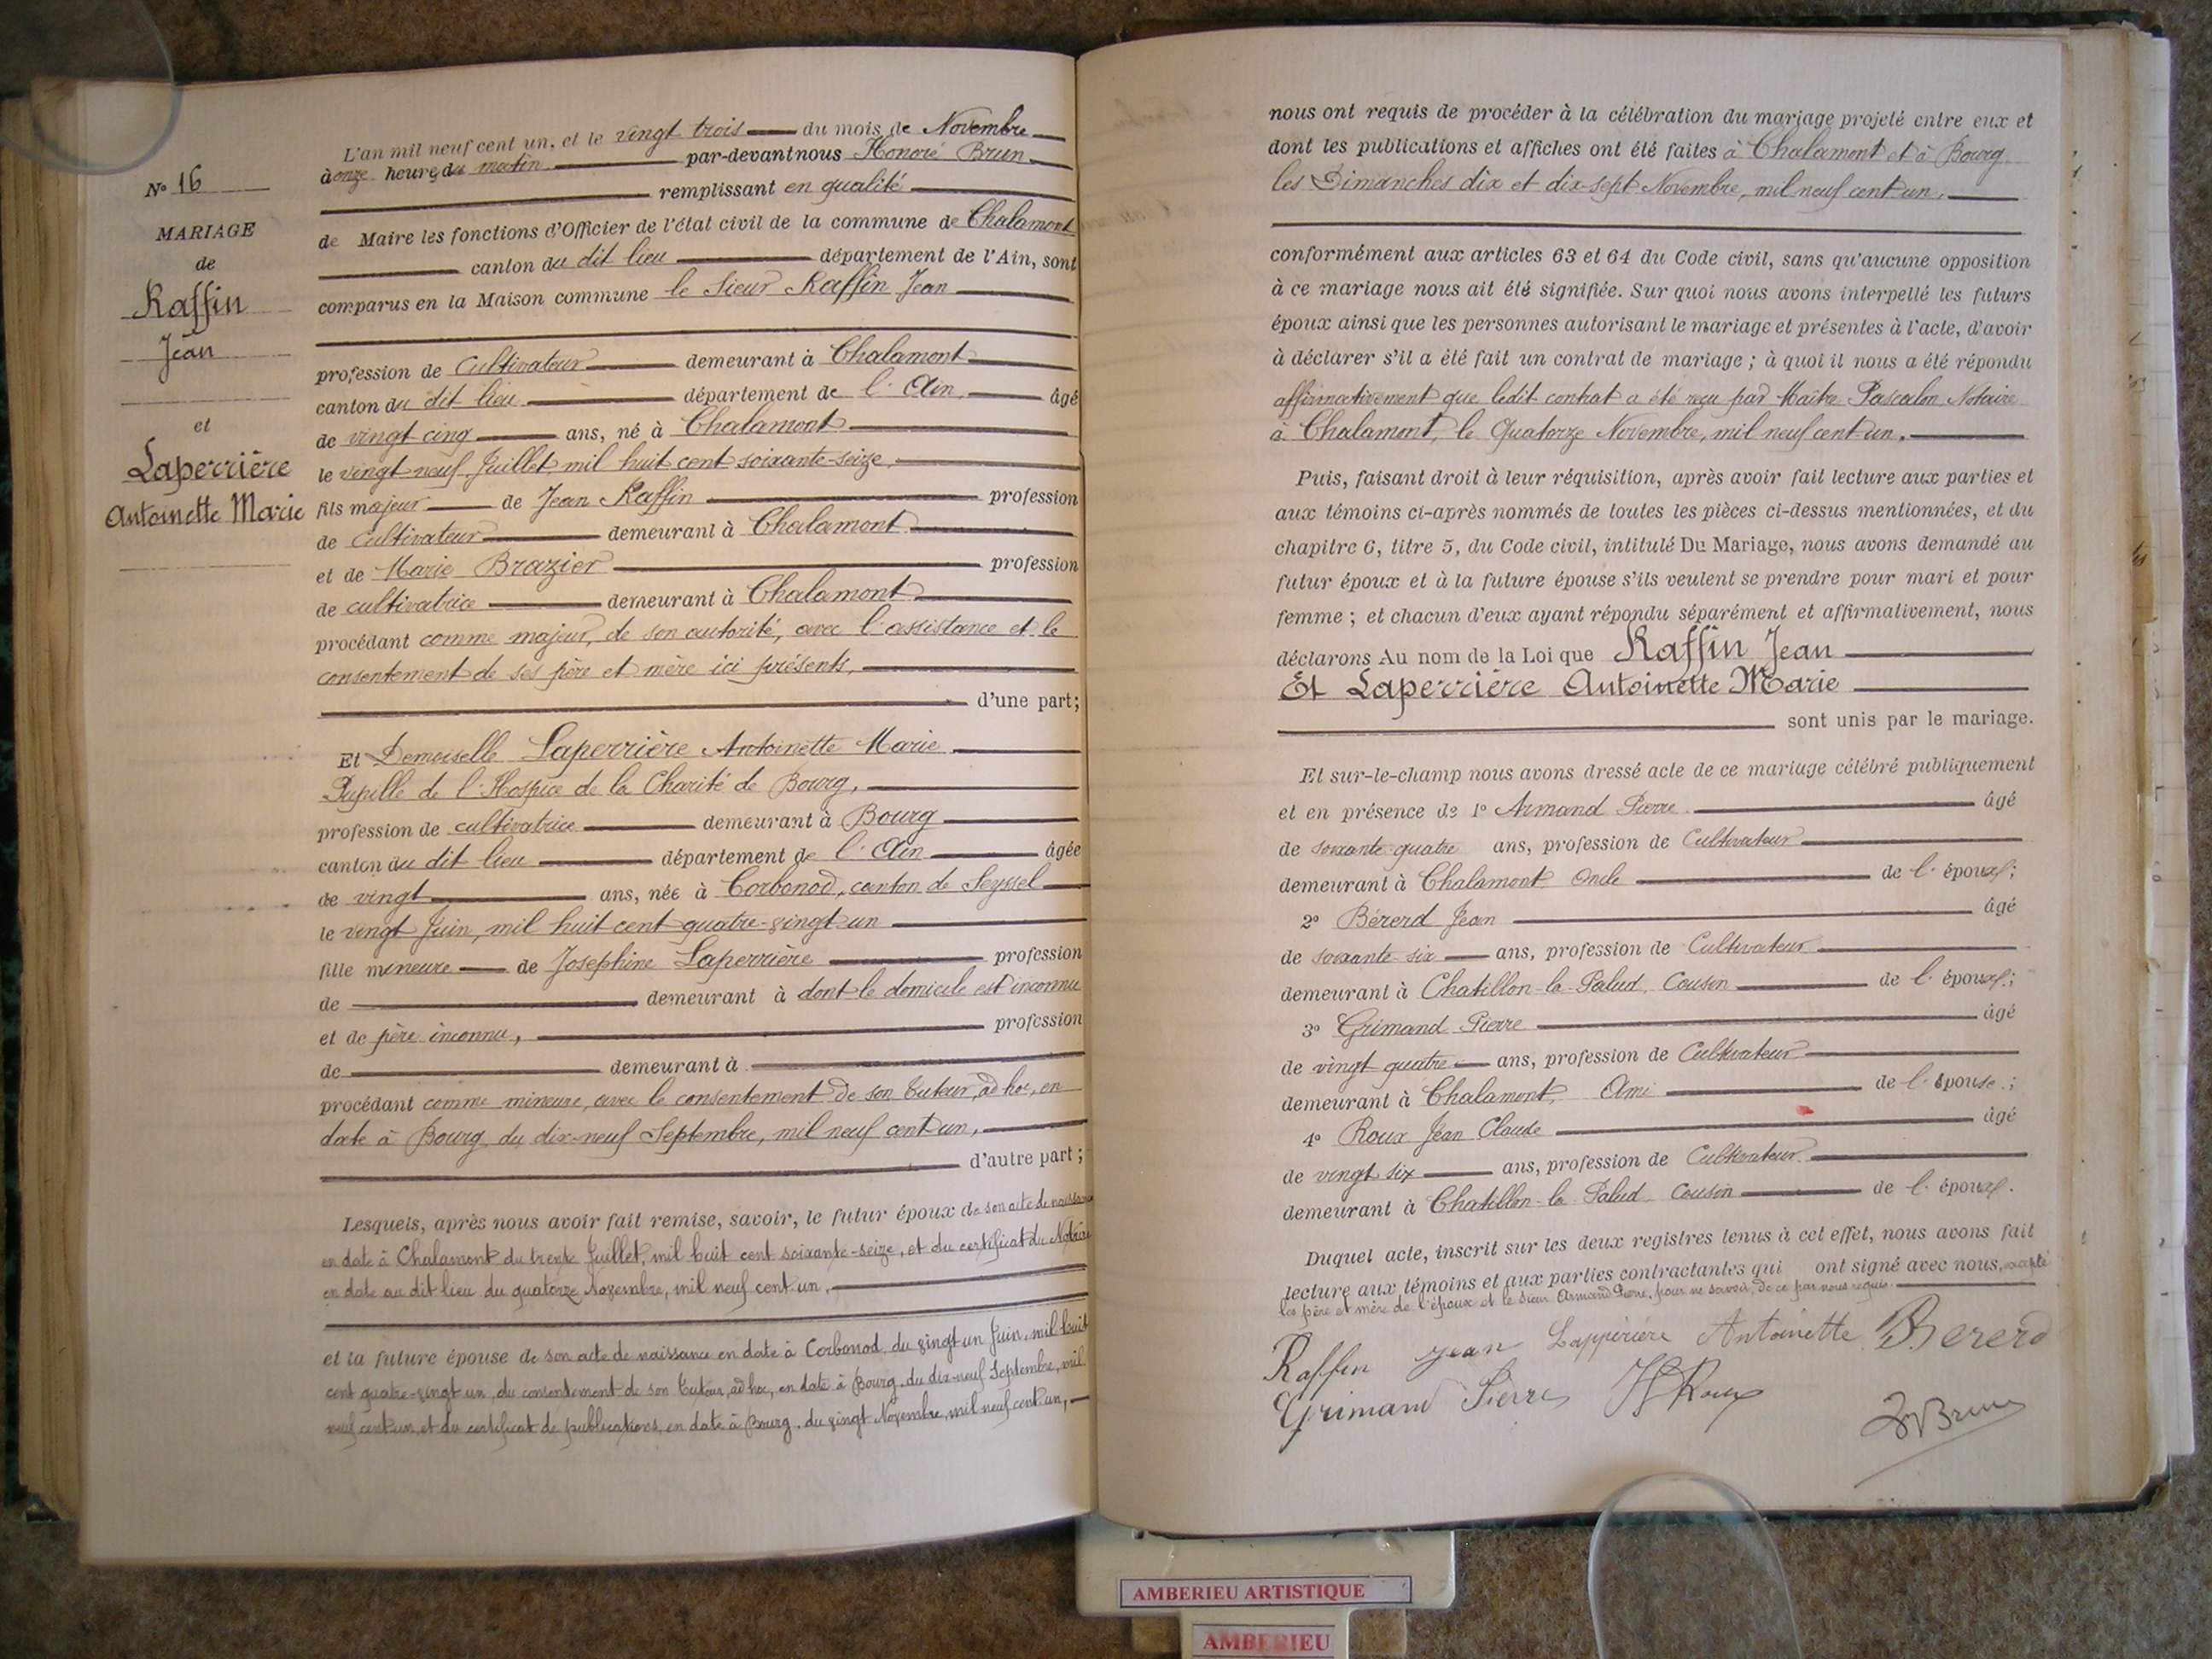 N° 16
MARIAGE
de
Raffin
Jean
et
Laperrière
Antoinette Marie
L'an mil neuf cent un, et le vingt trois du mois de Novembre
à onze heures du matin par-devant nous Honoré Brun
remplissant en qualité
de Maire les fonctions d'Officier de l'état civil de la commune de Chalamont
canton du dit lieu département de l'Ain, sont
comparus en la Maison commune le sieur Raffin Jean
profession de Cultivateur demeurant à Chalamont
canton du dit lieu département de l'Ain, âgé
de vingt cinq ans, né à Chalamont
le vingt neuf Juillet mil huit cent soixante-seize,
fils majeur de Jean Raffin profession
de cultivateur demeurant à Chalamont
et de Marie Brazier profession
de cultivatrice demeurant à Chalamont
procédant comme majeur, de son autorité, avec l'assistance et le
consentement de ses père et mère ici présents,
d'une part;
Et Demoiselle Laperrière Antoinette Marie
Pupille de l'Hospice de la Charité de Bourg,
profession de cultivatrice demeurant à Bourg
canton du dit lieu département de l'Ain âgée
de vingt ans, née à Corbonod, canton de Seyssel
le vingt Juin, mil huit cent quatre-vingt un
fille mineure de Josephine Laperrière profession
de demeurant à dont le domicile est inconnu
et de père inconnu, profession
de demeurant à
procédant comme mineure, avec le consentement de son tuteur, ad hoc, en
date à Bourg, du dix-neuf Septembre, mil neuf cent un,
d'autre part;
Lesquels, après nous avoir fait remise, savoir, le futur époux de son acte de naissance
en date à Chalamont du trente Juillet, mil huit cent soixante-seize, et du certificat du Notaire
en date au dit lieu du quatorze Novembre, mil neuf cent un,
et la future épouse de son acte de naissance en date à Corbonod, du vingt un Juin, mil huit
cent quatre-vingt un, du consentement de son tuteur, ad hoc, en date à Bourg, du dix-neuf Septembre, mil
neuf cent un, et du certificat de publications, en date à Bourg, du vingt Novembre, mil neuf cent un,
nous ont requis de procéder à la célébration du mariage projeté entre eux et
dont les publications et affiches ont été faites à Chalamont et à Bourg
les Dimanches dix et dix-sept Novembre, mil neuf cent un,
conformément aux articles 63 et 64 du Code civil, sans qu'aucune opposition
à ce mariage nous ait été signifiée. Sur quoi nous avons interpellé les futurs
époux ainsi que les personnes autorisant le mariage et présentes à l'acte, d'avoir
à déclarer s'il a été fait un contrat de mariage ; à quoi il nous a été répondu
affirmativement que ledit contrat a été reçu par Maître Pascalon, Notaire
à Chalamont, le Quatorze Novembre, mil neuf cent un.
Puis, faisant droit à leur réquisition, après avoir fait lecture aux parties et
aux témoins ci-après nommés de toutes les pièces ci-dessus mentionnées, et du
chapitre 6, titre 5, du Code civil, intitulé Du Mariage, nous avons demandé au
futur époux et à la future épouse s'ils veulent se prendre pour mari et pour
femme ; et chacun d'eux ayant répondu séparément et affirmativement, nous
déclarons Au nom de la Loi que Raffin Jean
Et Laperrière Antoinette Marie
sont unis par le mariage.
Et sur-le-champ nous avons dressé acte de ce mariage célébré publiquement
et en présence de 1° Armand Pierre âgé
de soixante quatre ans, profession de Cultivateur
demeurant à Chalamont Oncle de l'époux;
2° Bérerd Jean âgé
de soixante six ans, profession de Cultivateur
demeurant à Chatillon-la-Palud, Cousin de l'époux;
3° Grimand Pierre âgé
de vingt quatre ans, profession de Cultivateur
demeurant à Chalamont, Ami de l'épouse;
4° Roux Jean Claude âgé
de vingt six ans, profession de Cultivateur
demeurant à Chatillon-la-Palud cousin de l'époux.
Duquel acte, inscrit sur les deux registres tenus à cet effet, nous avons fait
lecture aux témoins et aux parties contractantes qui ont signé avec nous, excepté
les père et mère de l'époux et le sieur Armand Pierre, pour ne savoir, de ce par nous requis.
Raffin Jean Lappérière Antoinette Bererd
Grimand Pierre JC Roux
H Brun
AMBERIEU ARTISTIQUE
AMBERIEU